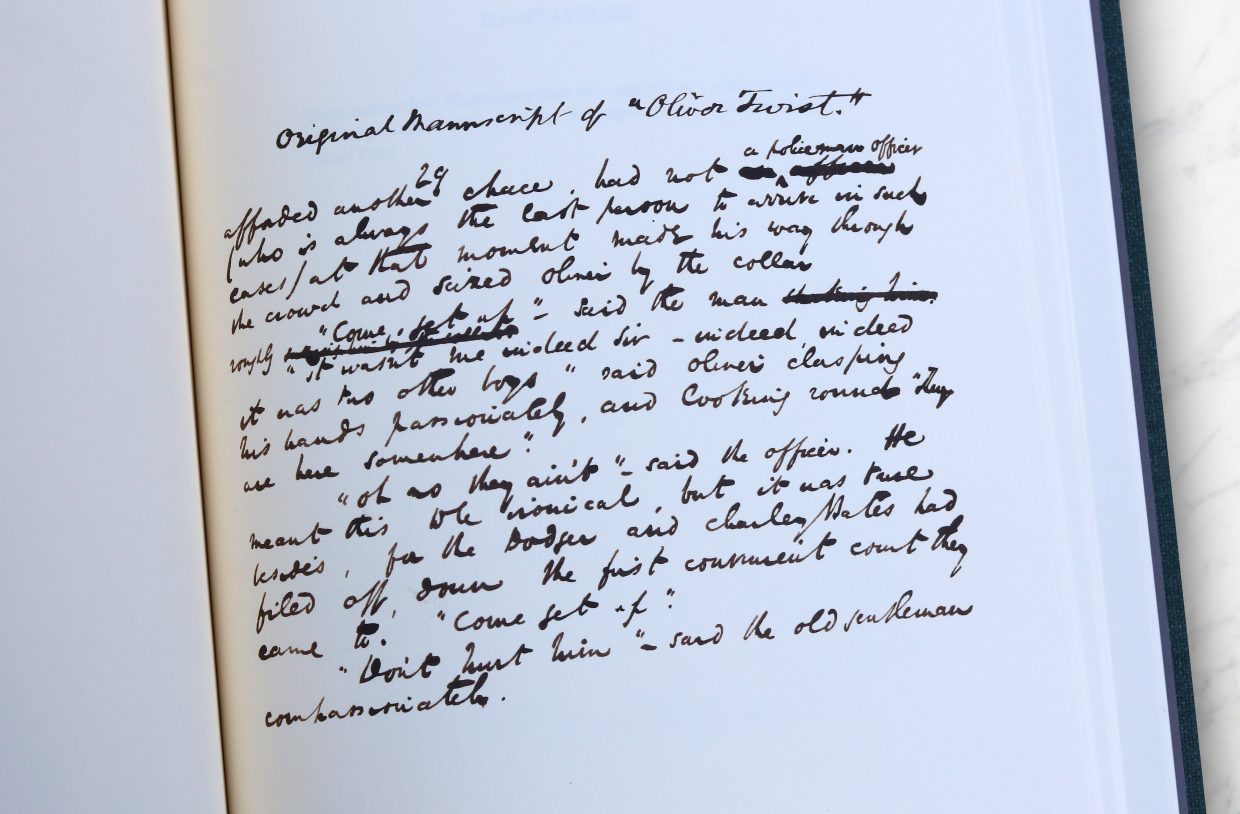 Original Manuscript of "Oliver Twist."
29
a policeman officer
afforded another chace, had not
(who is always the last person to arrive in such
cases) at that moment made his way through
the crowd and seized oliver by the collar
"Come, get up" – said the man shaking him.
roughly
"It wasn't me indeed Sir – indeed, indeed
it was two other boys" said oliver clasping
his hands passionately, and looking round "They
are here somewhere"
"oh no they ain't" – said the officer. He
meant this to be ironical, but it was true
besides, for the Dodger and charley Bates had
filed off, down the first convenient court they
came to. "Come get up"
"Don't hurt him" – said the old gentleman
compassionately.